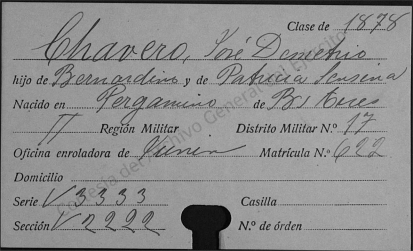 Clase de 1878
Chavero, José Demetrio
hijo de Bernardino y de Patricia Senseña
Nacido en Pergamino de Bs Aires
II Región Militar Distrito Militar N.º 17
Oficina enroladora de Junin Matrícula N.º 622
Domicilio
Serie V 3333 Casilla
Sección V 2222 N.º de órden